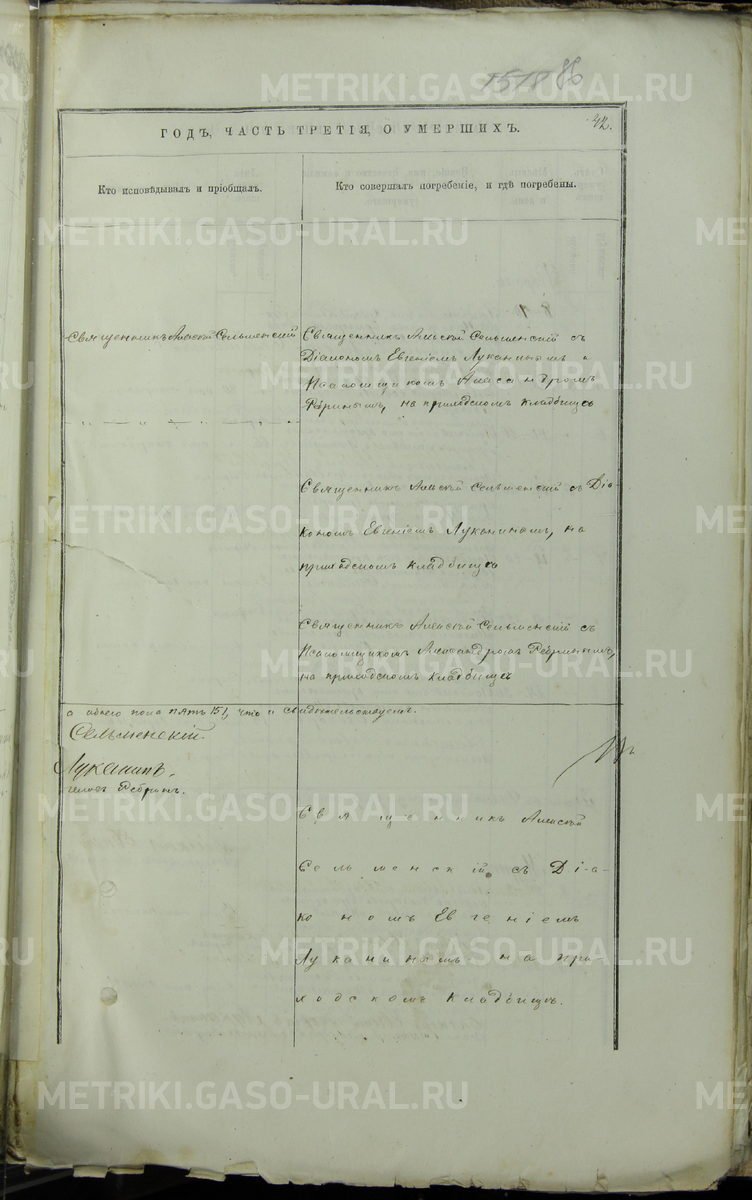 1518 86
42.
ГОДЪ, ЧАСТЬ ТРЕТІЯ, О УМЕРШИХЪ.
Кто исповѣдывалъ и пріобщалъ.
Кто совершалъ погребеніе, и гдѣ погребены.
Священникъ Алексій Сельменскій
Священникъ Алексій Сельменскій съ
Діакономъ Евгеніемъ Луканинымъ и
Псаломщикомъ Александромъ
на приходскомъ кладбищѣ
Священникъ Алексій Сельменскій съ Діа-
кономъ Евгеніемъ Луканинымъ, на
приходскомъ кладбищѣ
Священникъ Алексій Сельменскій съ
Псаломщикомъ Александромъ
на приходскомъ кладбищѣ
о обоего пола пять /5/, что и свидетельствуемъ.
Сельменскій.
Луканинъ.
Священникъ Алексій
Сельменскій съ Діа-
кономъ Евгеніемъ
Луканинымъ на при-
ходскомъ кладбищѣ.
METRIKI.GASO-URAL.RU